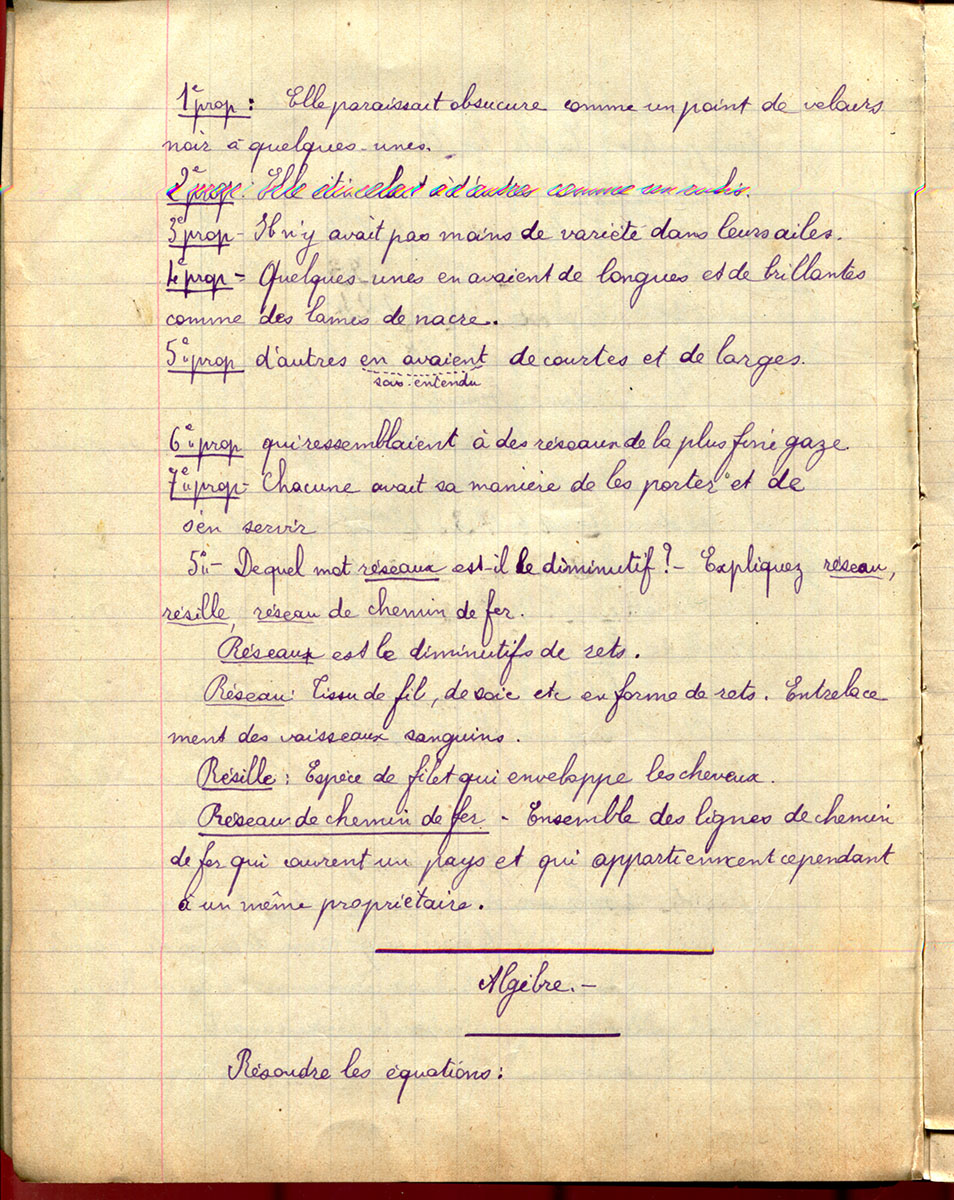 1e prop : Elle paraissait obsucure comme un point de velours
noir à quelques-unes.
2e prop : Elle étincelait à d'autres comme un rubis.
3e prop - Il n'y avait pas moins de variété dans leurs ailes.
4e prop = Quelques-unes en avaient de longues et de brillantes
comme des lames de nacre.
5e prop d'autres en avaient de courtes et de larges.
sous-entendu
6e prop qui ressemblaient à des réseaux de la plus fine gaze
7e prop - Chacune avait sa manière de les porter et de
s'en servir
5° - De quel mot réseaux est-il le diminutif ? - Expliquez réseau,
résille, réseau de chemin de fer.
Réseaux est le diminutifs de rets.
Réseau : Tissu de fil, de soie etc en forme de rets. Entrelace
ment des vaisseaux sanguins.
Résille : Espèce de filet qui enveloppe les cheveux.
Réseau de chemin de fer - Ensemble des lignes de chemin
de fer qui couvrent un pays et qui appartiennent cependant
à un même propriétaire.
Algèbre. -
Résoudre les équations :